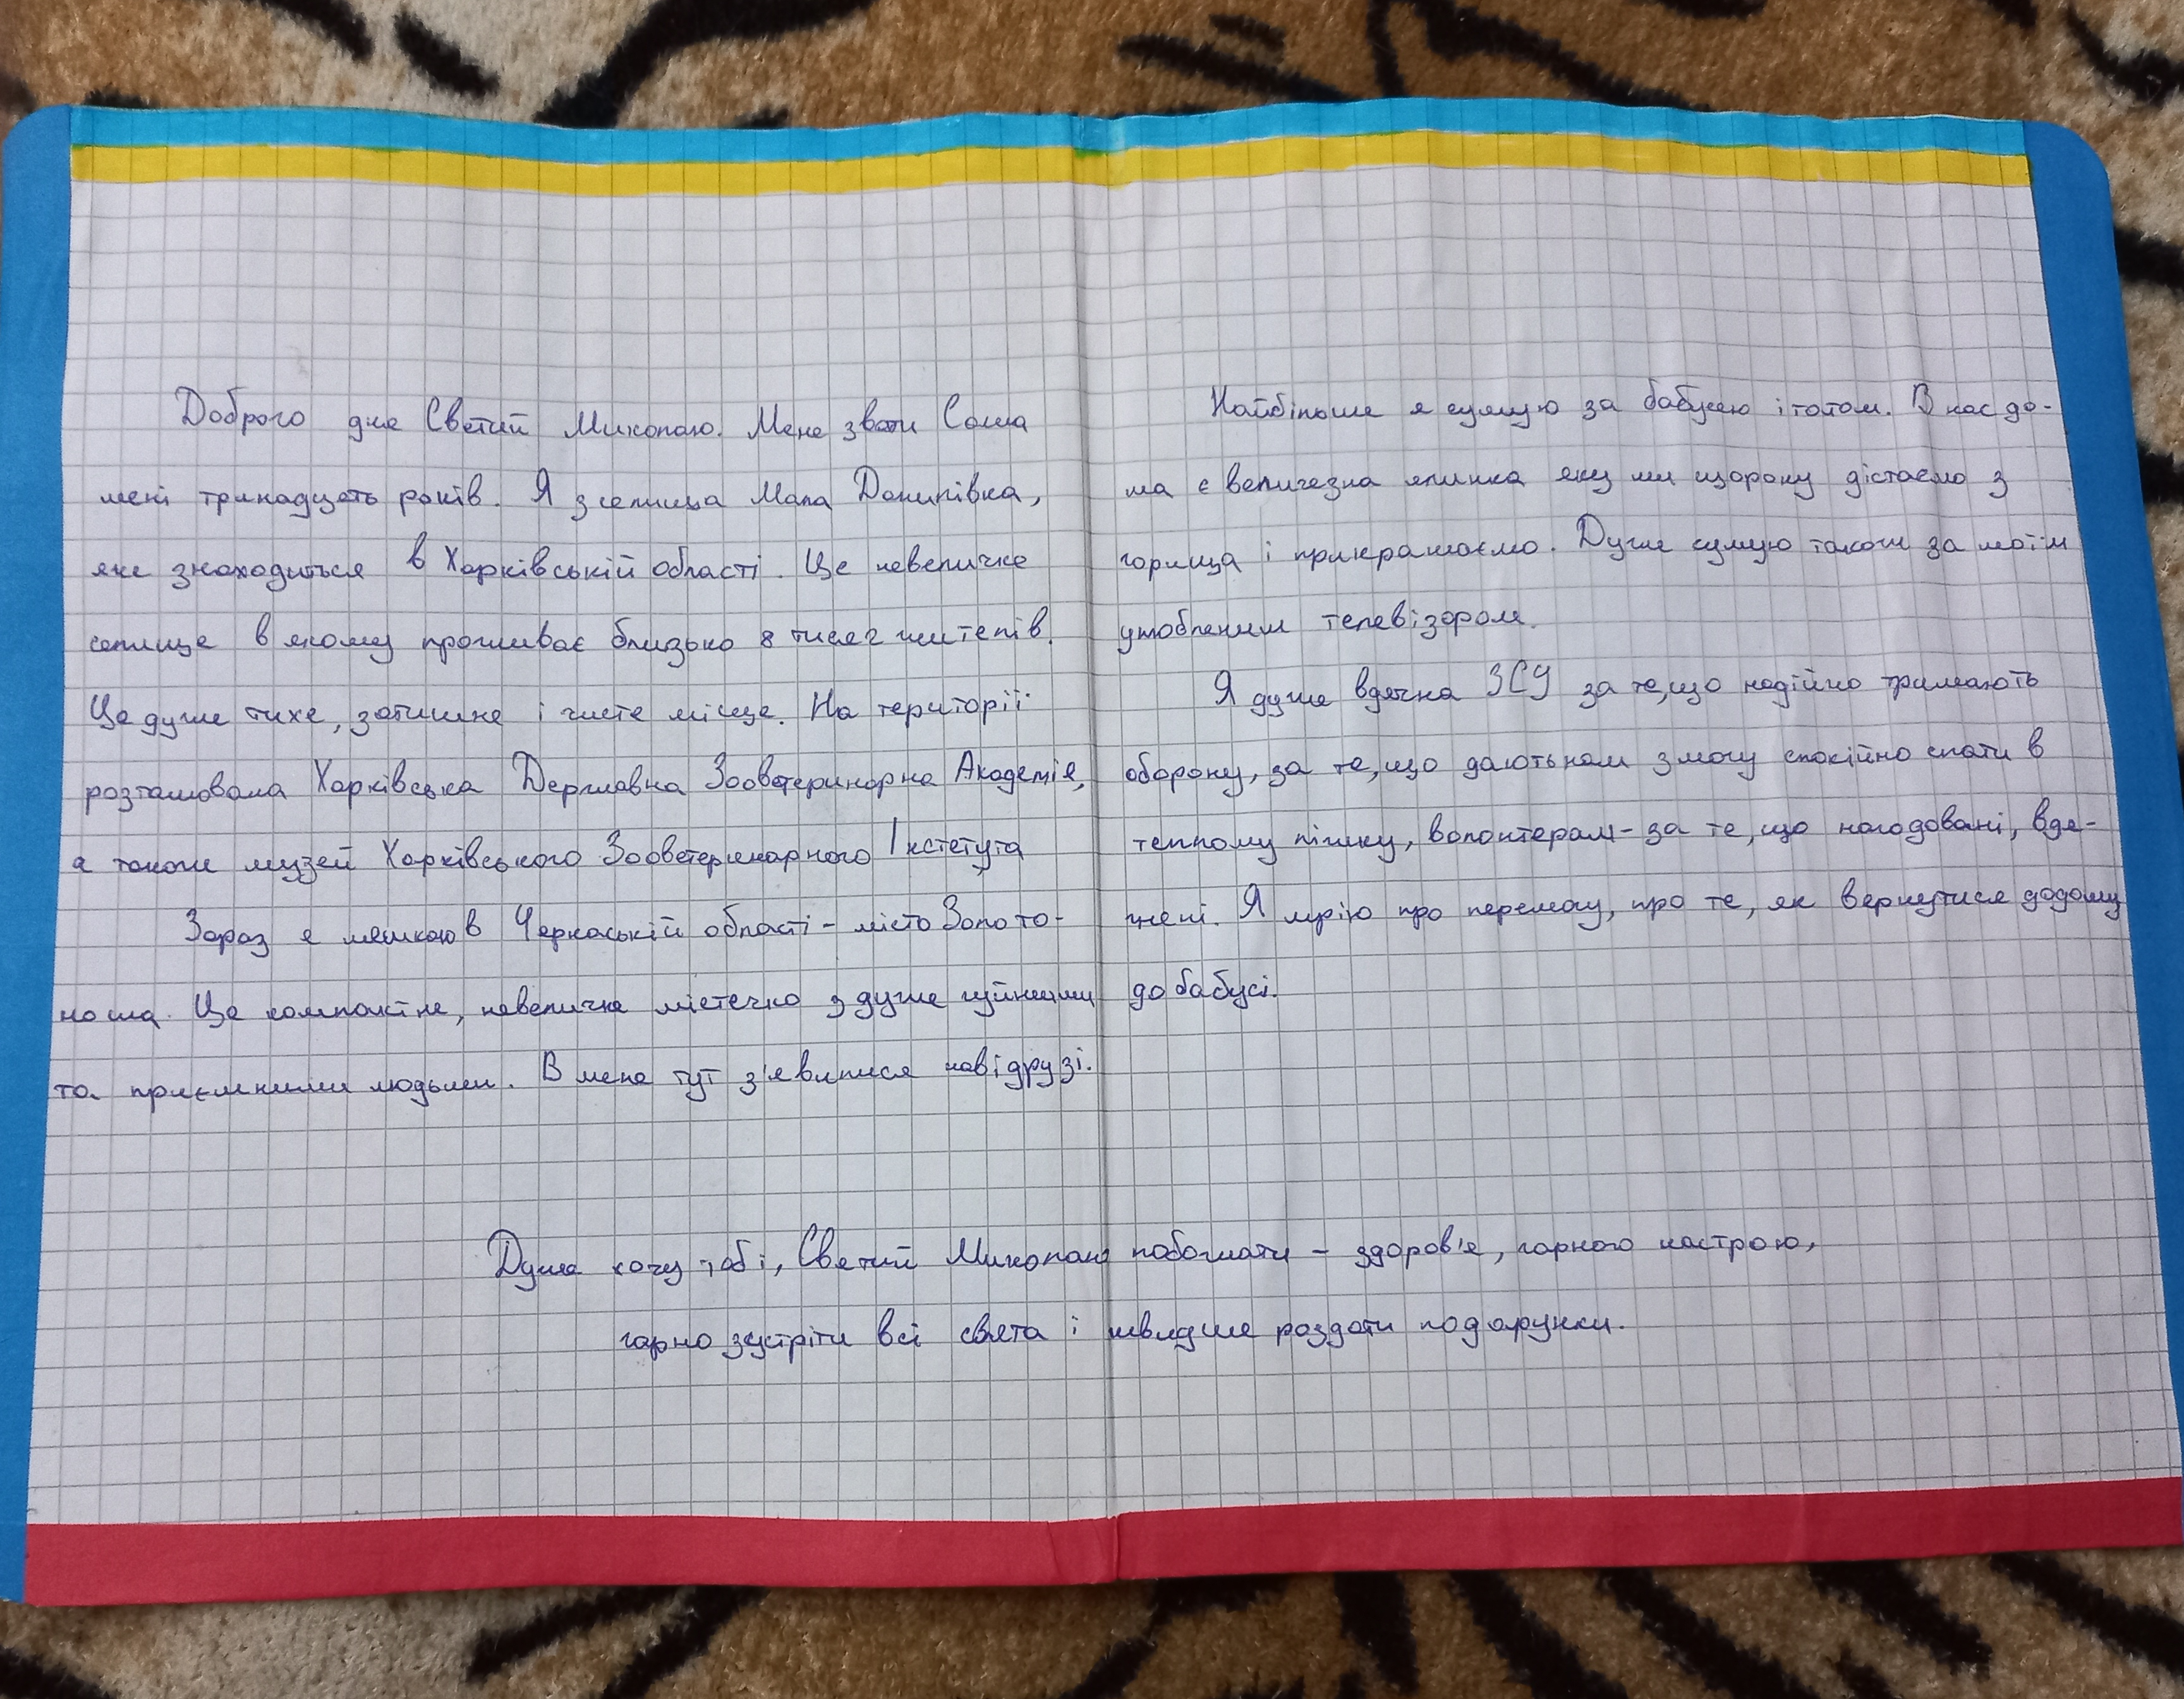 Доброго дня Святий Миколаю. Мене звати Саша
мені тринадцять років. Я з селища Мала Данилівка,
яке знаходиться в Харківській області. Це невеличке
селище в якому проживає близько 8 тисяч жителів.
Це дуже тихе, затишне і чисте місце. На території
розташована Харківська Державна Зооветеринарна Академія,
а також музей Харківського Зооветеринарного Інстетута
Зараз я мешкаю в Черкаській області - місто Золото-
ноша. Це компактне, невеличке містечко з дуже чуйними
та приємними людьми. В мене тут з'явилися нові друзі.
Найбільше я сумую за бабусею і татом. В нас до-
ма є величезна ялинка яку ми щороку дістаємо з
горища і прикрашаємо. Дуже сумую також за моїм
улюбленим телевізором.
Я дуже вдячна ЗСУ за те, що надійно тримають
оборону, за те, що дають нам змогу спокійно спати в
теплому ліжку, волонтерам - за те, що нагодовані, вдя-
гнені. Я мрію про перемогу, про те, як вернутися додому
до бабусі.
Дуже хочу тобі, Святий Миколаю побажати - здоров'я, гарного настрою,
гарно зустріти всі свята і швидше роздати подарунки.